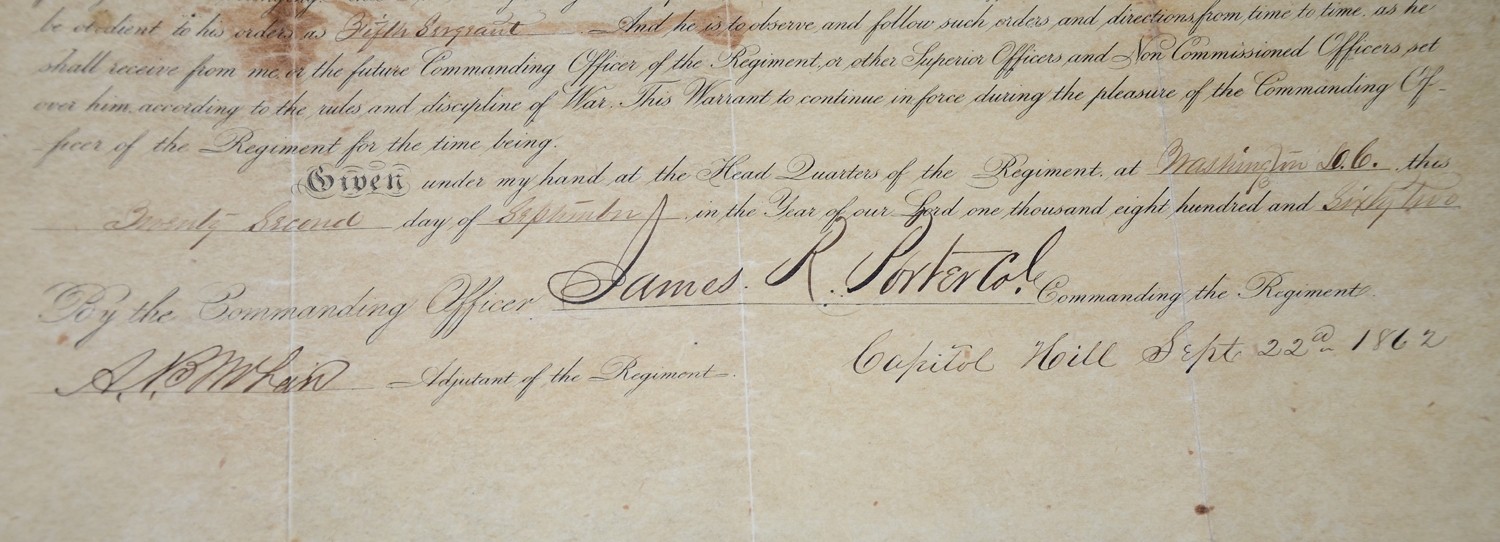 be obedient to his orders as Fifth Sergeant And he is to observe and follow such orders and directions, from time to time, as he
shall receive from me, or the future Commanding Officer of the Regiment, or other Superior Officers, and Non Commissioned Officers, set
over him, according to the rules and discipline of War. This Warrant to continue in force during the pleasure of the Commanding Of-
ficer of the Regiment for the time being.
Given under my hand at the Head Quarters of the Regiment, at Washington D.C. this
Twenty Second day of September in the Year of our Lord one thousand eight hundred and Sixty Two
By the Commanding Officer James. R. Porter Col. Commanding the Regiment.
A. Adjutant of the Regiment.
Capitol Hill Sept 22d 1862